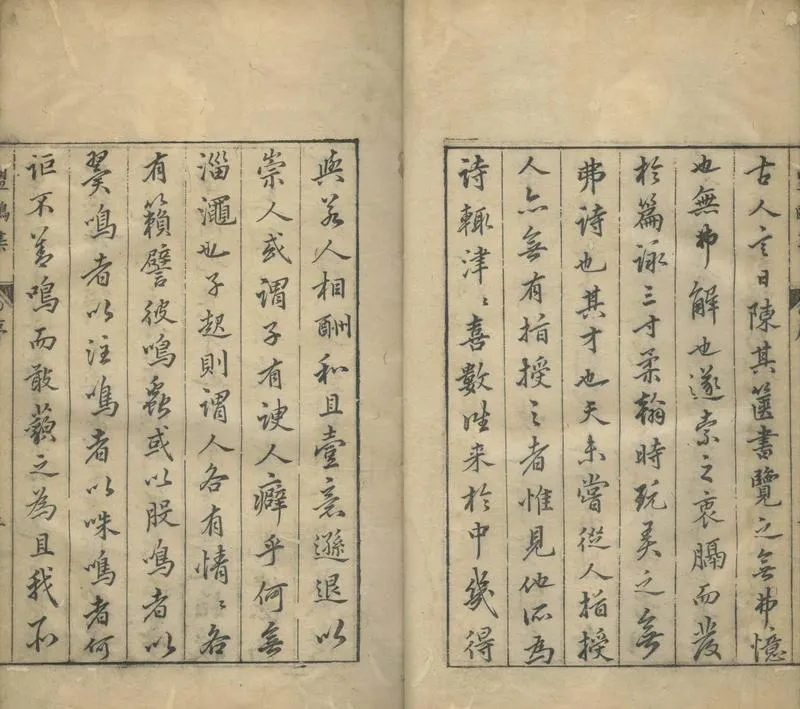 古人言曰陳其篋書覽之無弗憶
也無弗解也遂索之衷膈而發
於篇詠三寸柔翰時玩弄之無
弗詩也其才也天未嘗從人指授
人亦無有指授之者惟見他所為
詩輒津〻喜數往來於中幾得
與若人相酬和且壹意遜退以
崇人或謂子有諛人癖乎何無
淄澠也予起則謂人各有情〻各
有籟譬彼鳴蟲或以股鳴者以
翼鳴者以注鳴者以咮鳴者何
詎不善鳴而敢藐之為且我不
鳴集
序